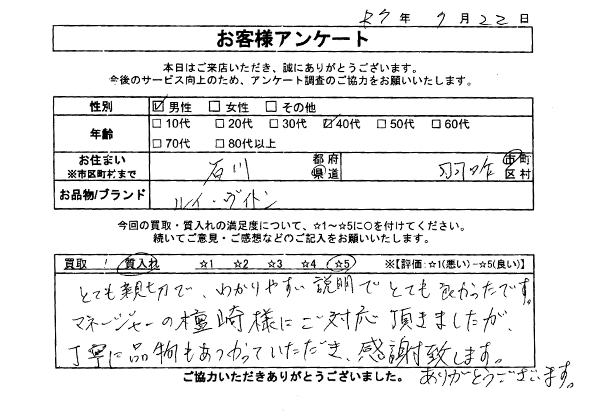 R7年 9月22日
お客様アンケート
本日はご来店いただき、誠にありがとうございます。
今後のサービス向上のため、アンケート調査のご協力をお願いいたします。
性別 ☑男性 □女性 □その他
年齢 □10代 □20代 □30代 ☑40代 □50代 □60代
□70代 □80代以上
お住まい ※市区町村まで 石川 都府県道 羽咋 市町区村
お品物/ブランド ルイ・ヴィトン
今回の買取・質入れの満足度について、☆1～☆5に○を付けてください。
続いてご意見・ご感想などのご記入をお願いいたします。
買取 / 質入れ ☆1 ☆2 ☆3 ☆4 ☆5 ※【評価:☆1(悪い)−☆5(良い)】
とても親切で、わかりやすい説明でとても良かったです。
マネージャーの檀崎様にご対応頂きましたが、
丁寧に品物もあつかっていただき、感謝致します。
ありがとうございます。
ご協力いただきありがとうございました。